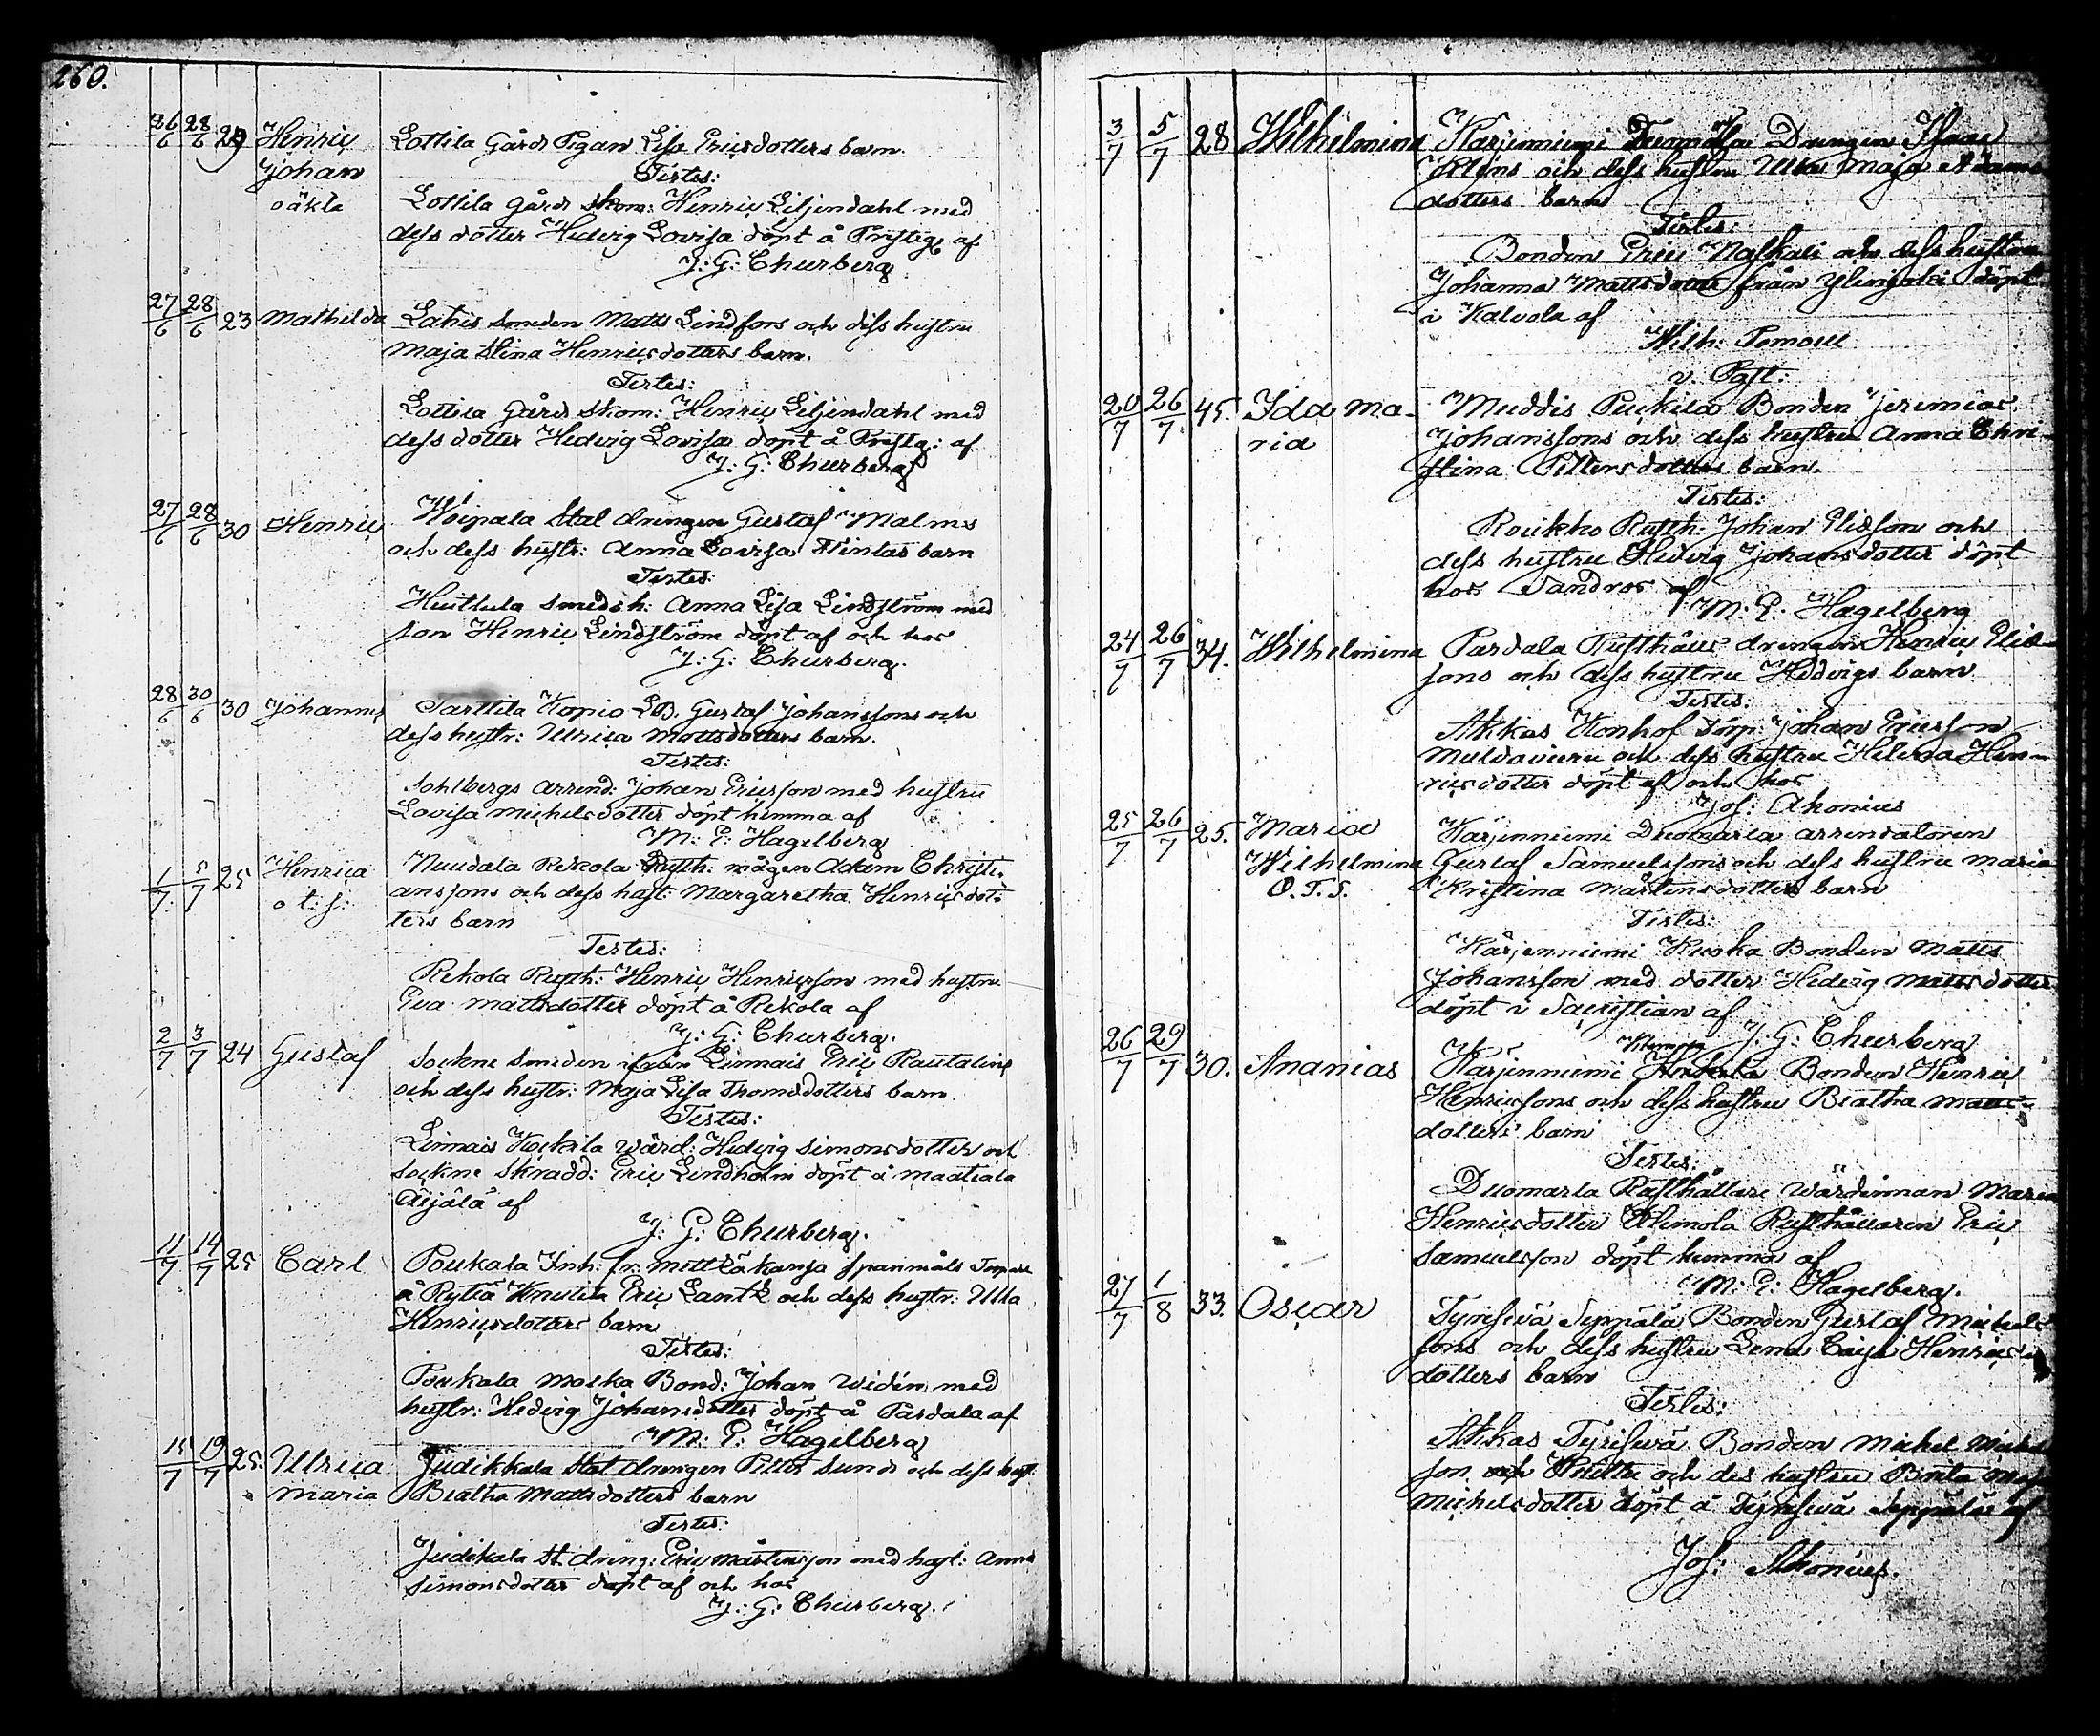 260.
26/6 28/6 29 Henric Lottila Gårds Pigan Lisa Ericsdotters barn.
Johan Testes:
oäkta Lottila Gårds skom: Henric Liljendahl med
dess dotter Hedvig Lovisa döpt å Prestg: af
J: G: Churberg
27/6 28/6 23 Mathilda Lahis smeden Matts Lindfors och dess hustru
Maja Stina Henricsdotters barn.
Testes:
Lottila Gårds skom: Henric Liljendahl med
dess dotter Hedvig Lovisa döpt å Prestg: af
J: G: Churberg
27/6 28/6 30 Henric Woipala Stal drengen Gustaf Malms
och dess hustr: Anna Lovisa barn
Testes:
Huittula smedsh: Anna Lisa Lindström med
son Henric Lindström döpt af och hos
J: G: Churberg.
28/6 30/6 30 Johannes Tarttila Kopio LB. Gustaf Johanssons och
dess hustr: Ulrica Mattsdotters barn.
Testes:
Sohlbergs arrend: Johan Ericsson med hustru
Lovisa Michelsdotter döpt hemma af
M: E: Hagelberg
1/7 5/7 25 Henrica Nuudala Rekola Rusth: mågen Adam Christi-
o t: f: anssons och dess hust: Margaretha Henricsdot-
ters barn
Testes:
Rekola Rusth: Henric Henricsson med hustru
Eva Mattsdotter döpt å Rekola af
J: G: Churberg.
2/7 3/7 24 Gustaf Sockne smeden från Linnais Eric Rautelins
och dess hustr: Maja Lisa Thomsdotters barn
Testes:
Linnais Kockila wärd: Hedvig Simonsdotter och
sockne skradd: Eric Lindholm döpt å
Äijälä af
J: G: Churberg.
11/7 14/7 25 Carl Poukala Inh: fr:
å Eric och dess hustr: Ulla
Henricsdotters barn
Testes:
Poukala Bond: Johan Widén med
hustr: Hedvig Johansdotter döpt å Pardala af
M: E: Hagelberg
15/7 19/7 25. Ulrica Judikkala Stal drengen Petter Sunds och dess hust.
Maria Beatha Mattsdotters barn
Testes:
Judikala St. dreng: Eric Mårtensson med hust: Anna
Simonsdotter döpt af och hos
J: G: Churberg.
3/7 5/7 28 Wilhelmina Karjenniemi Drengen Isaac
och dess hustru Maja Adams
dotters barn
Testes:
Bonden Eric och dess hustru
Johanna Mattsdotter från döpt
i Kalvola af
Wilh:
v. Past:
20/7 26/7 45. Ida Ma- Muddis Peukila Bonden Jeremias
ria Johanssons och dess hustru Anna Chri-
stina Pettersdotters barn.
Testes:
Roukko Rusth: Johan Eliasson och
dess hustru Hedvig Johansdotter döpt
hos Sandros af
M: E: Hagelberg
24/7 26/7 34. Wilhelmina Pardala Rusthålls drengen Henric Elias-
sons och dess hustru Hedvigs barn
Testes:
Akkas Torp: Johan Ericsson
och dess hustru Helena Hen-
ricsdotter döpt af och hos
Jos: Ahonius
25/7 26/7 25. Maria Karjenniemi Duomarla arrendatoren
Wilhelmina Gustaf Samuelssons och dess hustru Maria
O. T. F. Kristina Mårtensdotters barn
Testes:
Karjenniemi Bonden Matts
Johansson med dotter Hedvig Mattsdotter
döpt i Sacristian af
J: G: Churberg
26/7 29/7 30. Ananias Karjenniemi Bonden Henric
Henricssons och dess hustru Beatha Matts-
dotters barn
Testes:
Duomarla Rusthållare Wärdinnan Maria
Henricsdotter Rusthållaren Eric
Samuelsson döpt hemma af
M: E: Hagelberg.
27/7 1/8 33. Oscar Tyrisevä Seppälä Bonden Gustaf Michels-
sons och dess hustru Lena Caisa Henrics-
dotters barn
Testes:
Akkas Tyrisevä Bonden Michel
son och des hustru Brita Maja
Michelsdotter döpt å Tyrisevä Seppälä af
Jos: Ahonius.